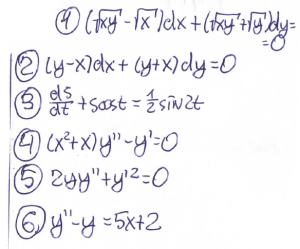 ① (√xy - √x)dx + (√xy + √y)dy =
= 0
② (y-x)dx + (y+x)dy = 0
③ ds/dt + s cos t = 1/2 sin 2t
④ (x²+x)y'' - y' = 0
⑤ 2yy'' + y'² = 0
⑥ y'' - y = 5x + 2